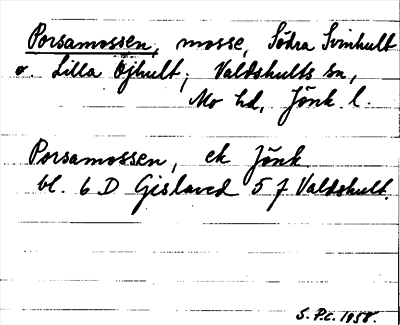 Porsamossen, mosse, Södra Svinhult
o. Lilla Öjhult, Valdshults sn,
Mo hd, Jönk l.
Porsamossen, ek Jönk
bl. 6 D Gislaved 5 f Valdshult.
S. P.C. 1958.